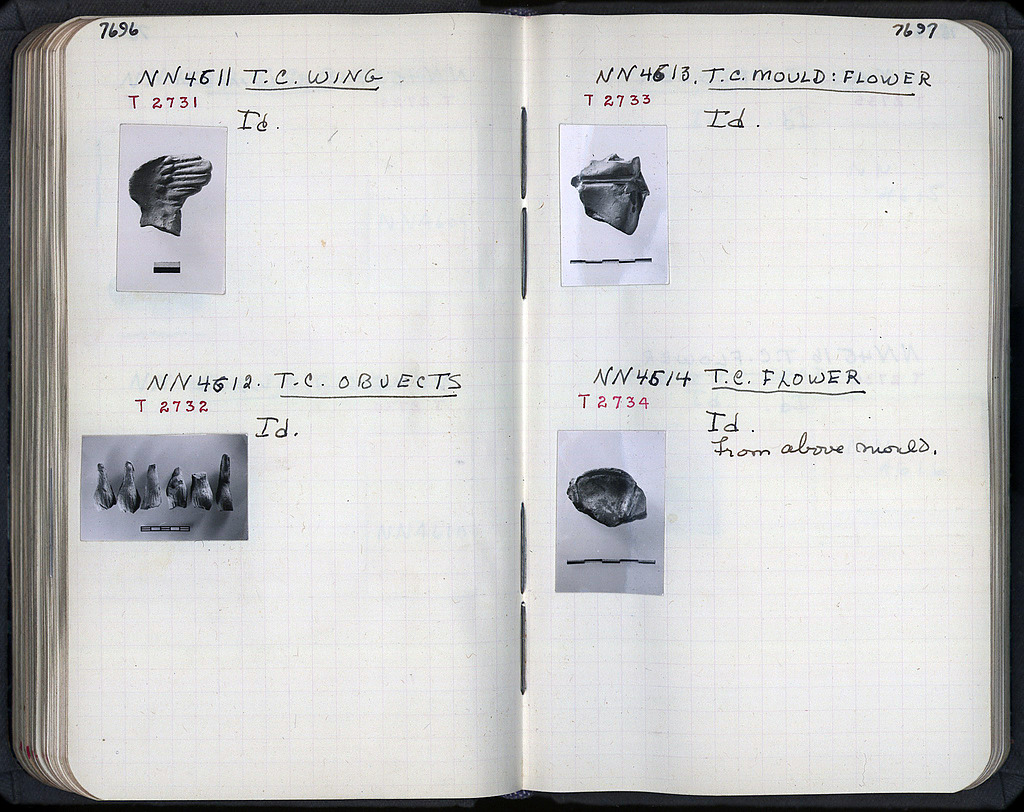 7696
NN4611 T.C. WING
T 2731
Id.
NN4612. T.C. OBJECTS
T 2732
Id.
7697
NN4613. T.C. MOULD: FLOWER
T 2733
Id.
NN4614 T.C. FLOWER
T 2734
Id.
From above mould.